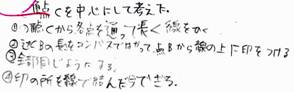 点Cを中心にして考えた。
①点Cから各点を通って長く線をかく
②辺CBの長さをコンパスではかって点Bから線の上に印をつける
③全部同じようにする。
④印の所を線で結んだらできる。